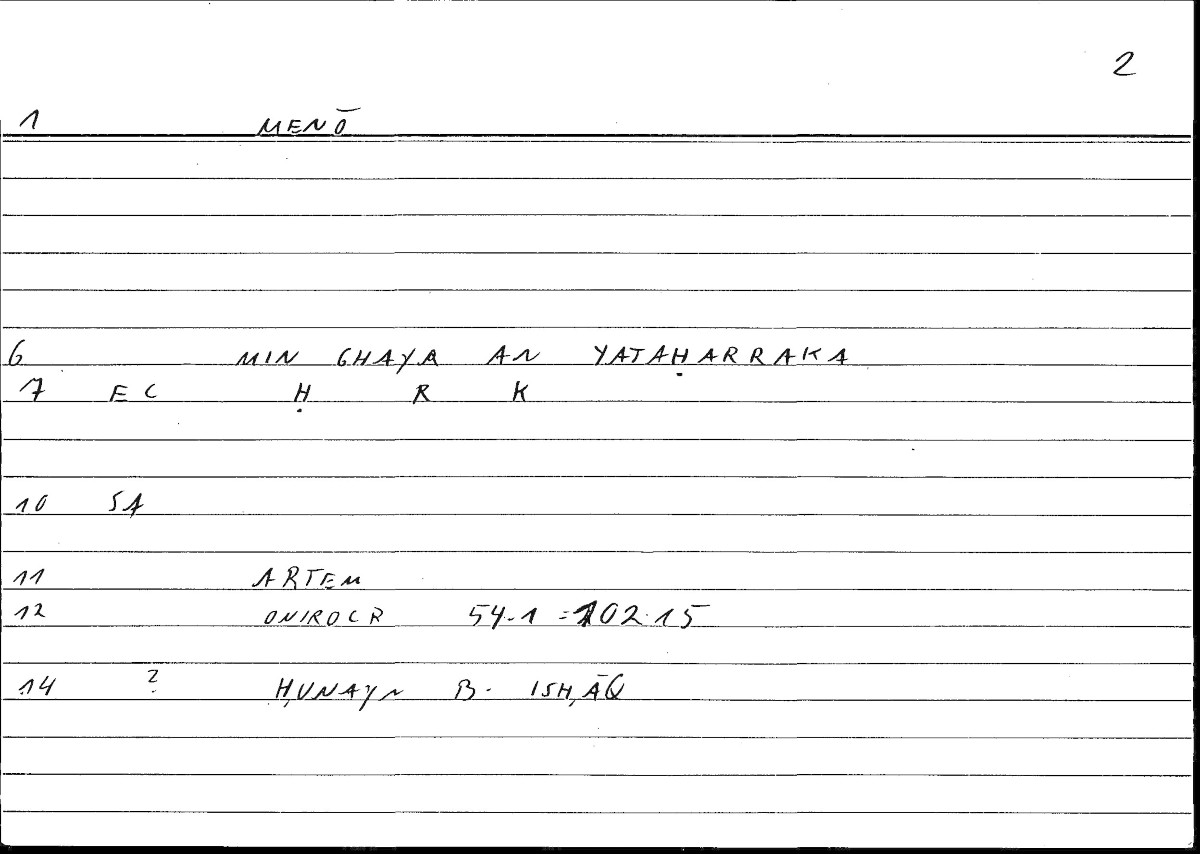 2
1 MENŌ
6 MIN GHAYR AN YATAḤARRAKA
7 EC Ḥ R K
10 SA
11 ARTEM
12 ONIROCR 54.1 = 102.15
14 ? ḤUNAYN B. ISḤĀQ